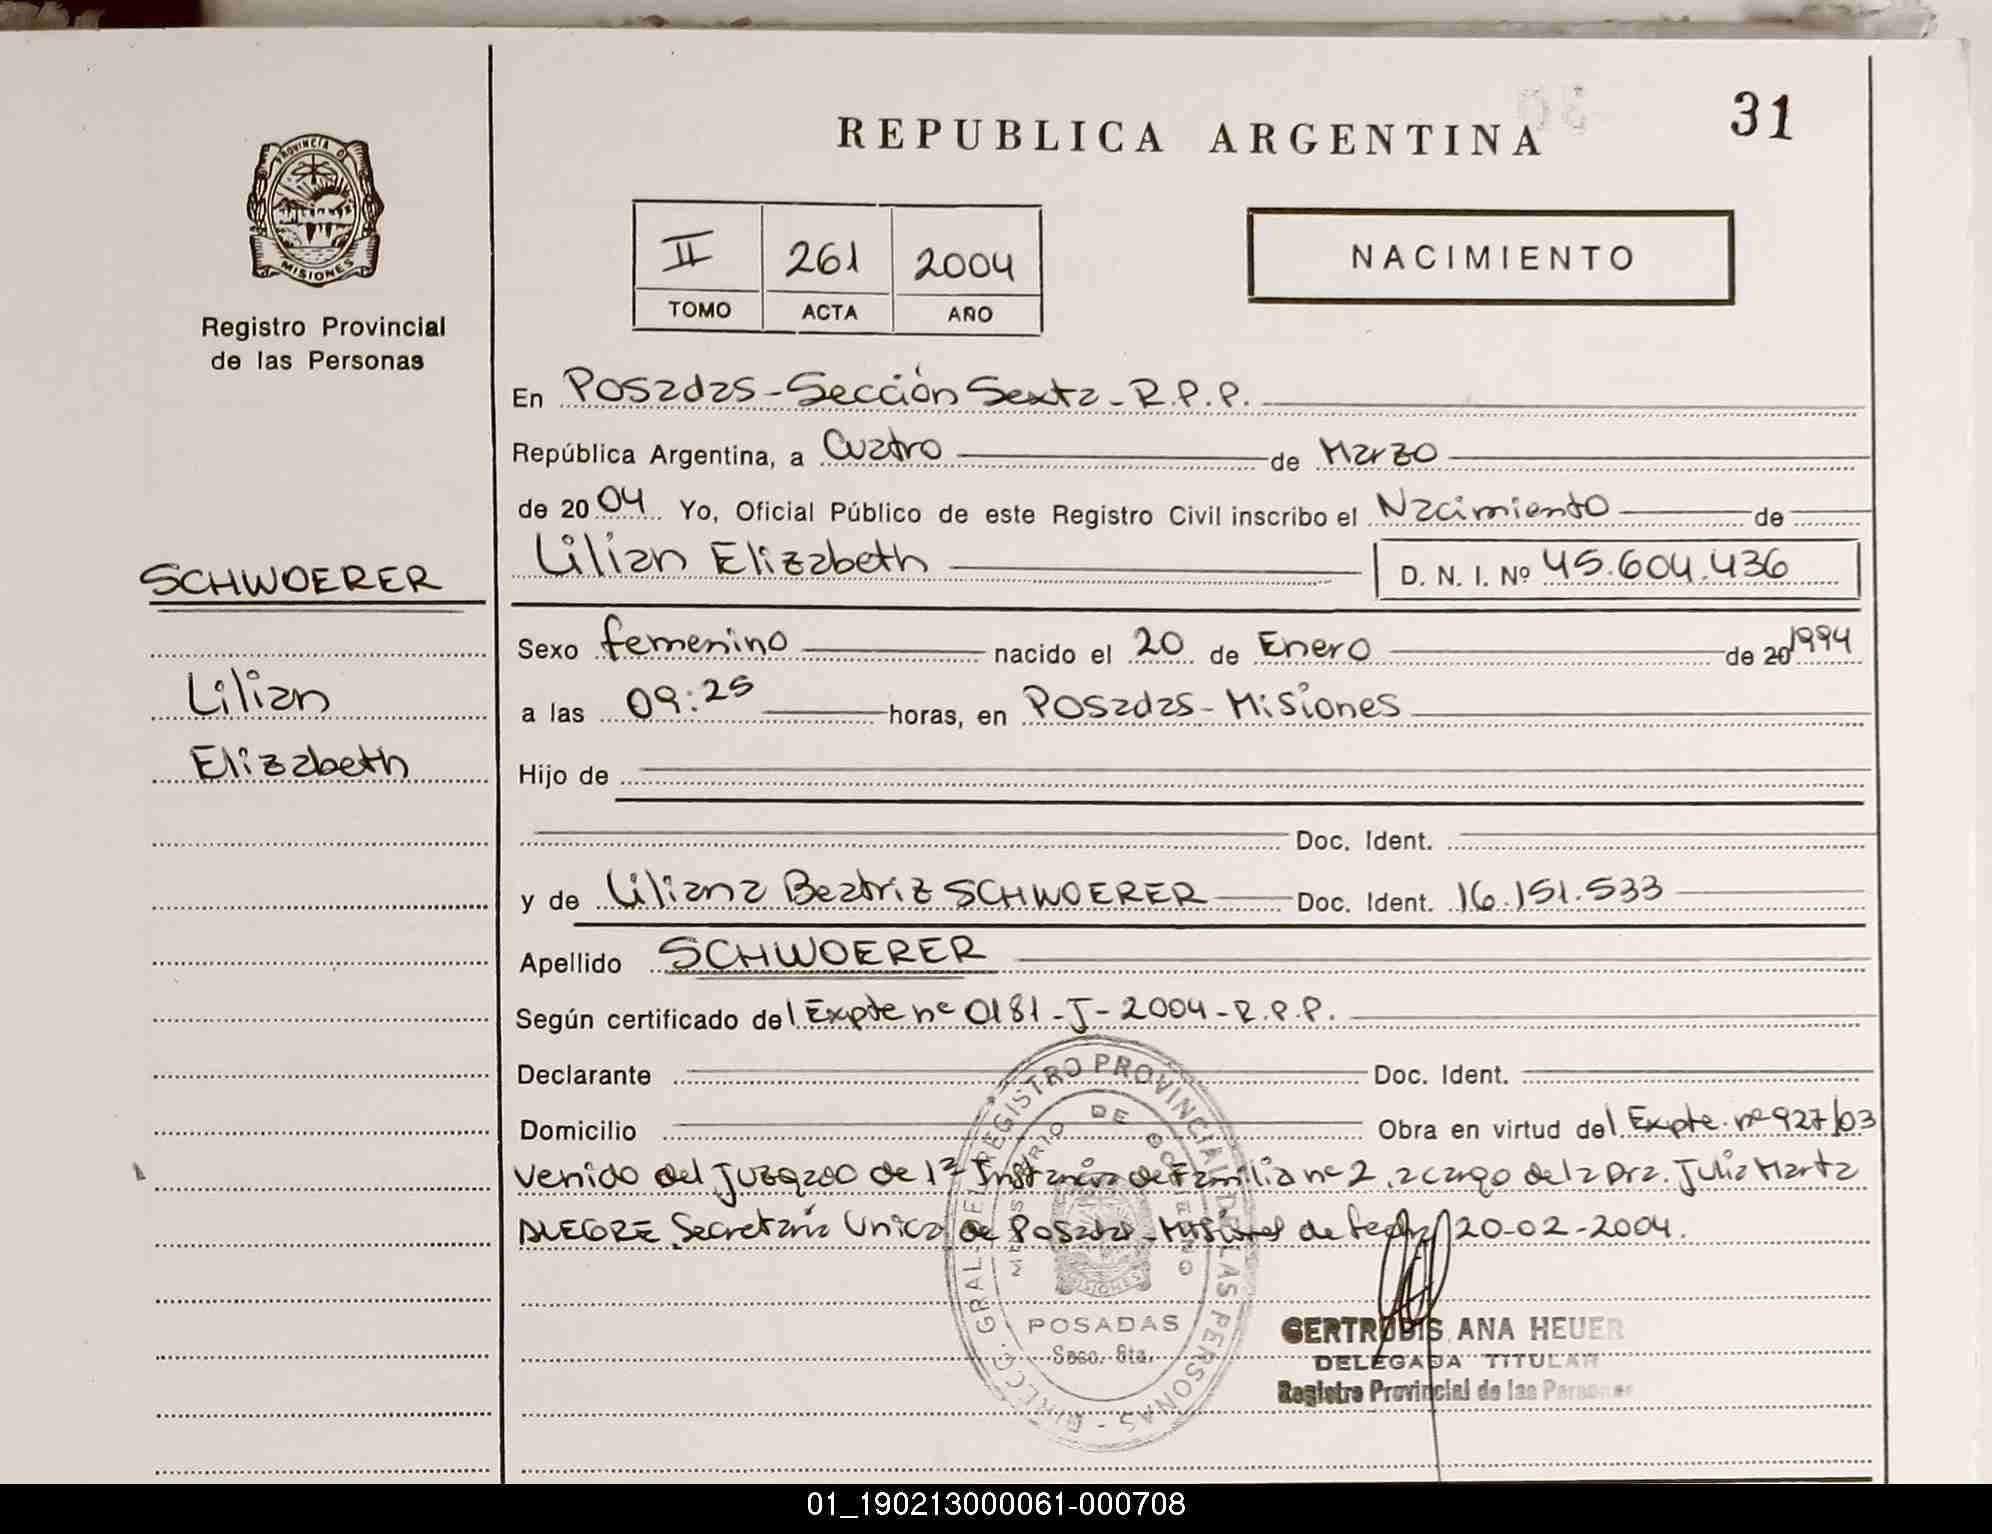 31
REPUBLICA ARGENTINA
PROVINCIA DE
MISIONES
Registro Provincial
de las Personas
II 261 2004
TOMO ACTA AÑO
NACIMIENTO
En Posadas-Sección Sexta-R.P.P.
República Argentina, a Cuatro de Marzo
de 2004 Yo, Oficial Público de este Registro Civil inscribo el Nacimiento de
Lilian Elizabeth D. N. I. Nº 45.604.436
SCHWOERER
Lilian
Elizabeth
Sexo femenino nacido el 20 de Enero de 20 1994
a las 09:25 horas, en Posadas-Misiones
Hijo de
Doc. Ident.
y de Liliana Beatriz SCHWOERER Doc. Ident. 16.151.533
Apellido SCHWOERER
Según certificado del Expte nº 0181-J-2004-R.P.P.
Declarante Doc. Ident.
Domicilio Obra en virtud del Expte. nº 927/03
venido del Juzgado de 1ª Instancia de Familia nº 2, a cargo de la Dra. Julia Marta
ALEGRE, Secretaría Unica de Posadas-Misiones de fecha 20-02-2004.
DIRECC. GRAL. DEL REGISTRO PROVINCIAL DE LAS PERSONAS
MINISTERIO DE GOBIERNO
MISIONES
POSADAS
Secc. 6ta.
GERTRUDIS ANA HEUER
DELEGADA TITULAR
Registro Provincial de las Personas
01_190213000061-000708